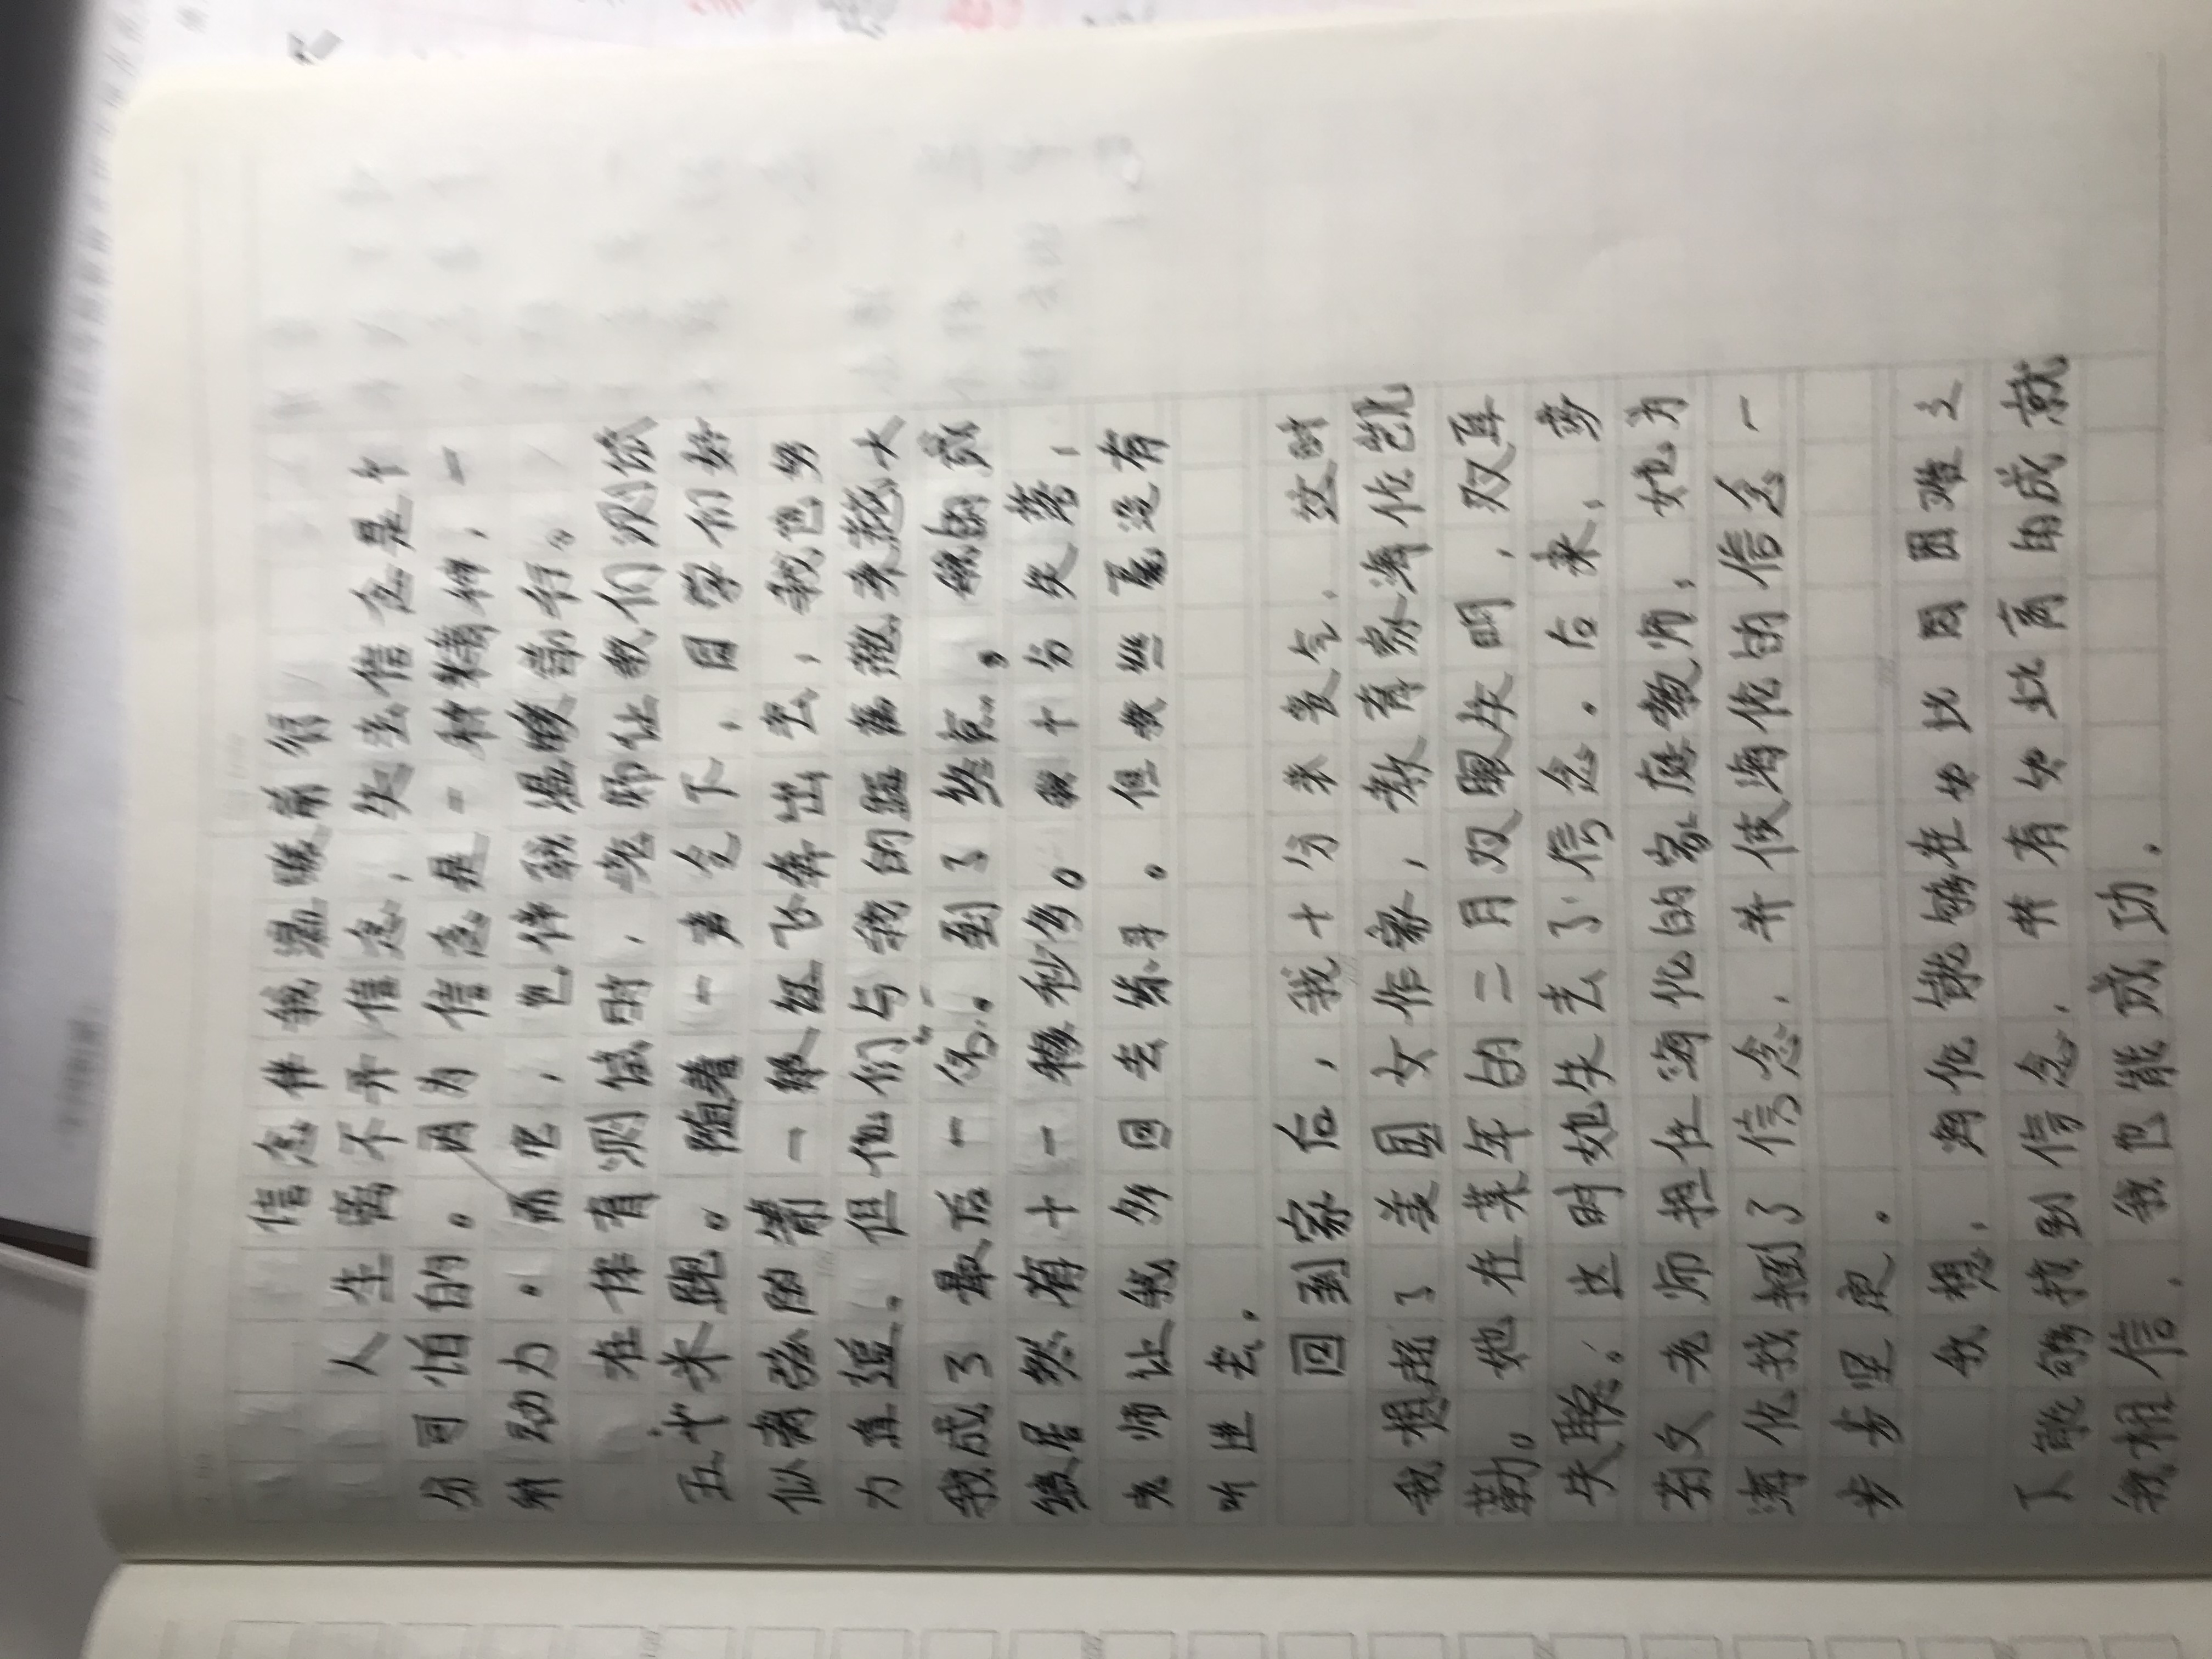 信念伴我温暖前行
人生离不开信念,失去信念是十
分可怕的。因为信念是一种精神,一
种动力。而它,也伴我温暖前行。
在体育测试时,老师让我们测试
五十米跑。随着一声令下,同学们好
似离弦的箭一般短飞奔出去,我也努
力直追。但他们与我的距离越来越大
我成了最后一名。到了终点,我的成
绩居然有十一秒多。我十分失落,
老师让我多回去练习。但我丝毫没有
听进去。
回到家后,我十分来生气,这时
我想起了美国女作家,教育家海伦凯
勒。她在某年的二月双眼失明,双耳
失聪。这时她失去了信念。后来,莎
莉文老师担任海伦的家庭教师,她为
海伦找到了信念,并使海伦的信念一
步步坚定。
我想,海伦能够在如此困难之
下能够找到信念,并有如此高的成就
我相信,我也能成功。